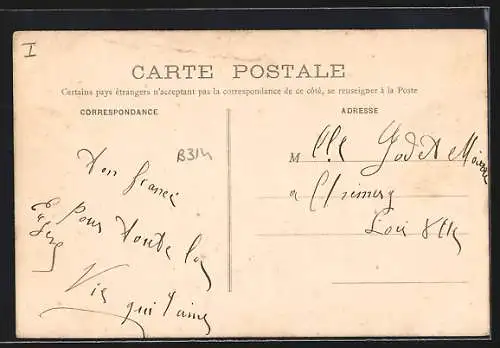 I
CARTE POSTALE
Certains pays étrangers n'acceptant pas la correspondance de ce côté, se renseigner à la Poste
CORRESPONDANCE
B314
Ton
pour toute la
Vie qui t'aime
Eugène
ADRESSE
M lle Godet
a Chémery
Loir & Cher